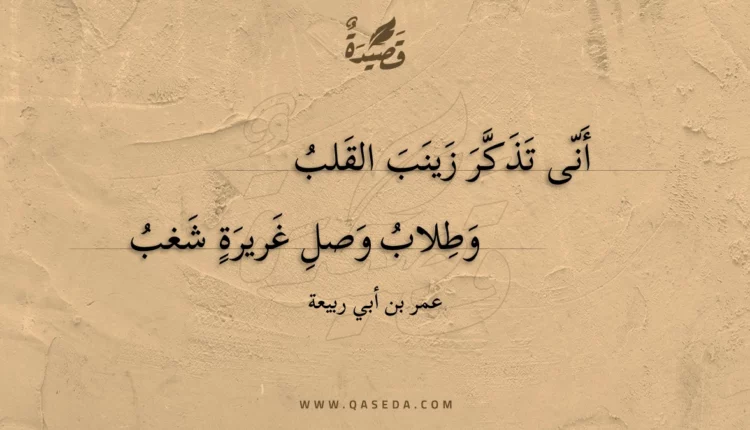 قَصِيْدَةٌ
أَنّى تَذَكَّرَ زَينَبَ القَلبُ
وَطِلابُ وَصلِ غَريرَةٍ شَغبُ
عمر بن أبي ربيعة
WWW.QASEDA.COM